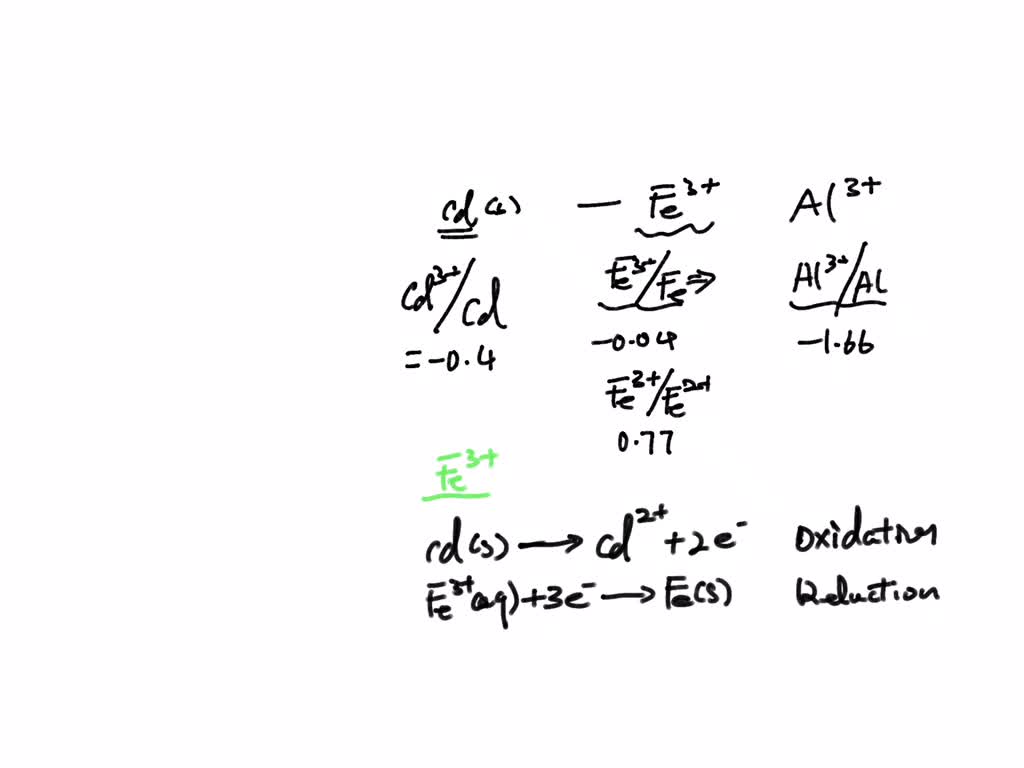 Cd(s) — Fe³⁺ Al³⁺
Cd³⁺/Cd Fe³⁺/Fe ⇒ Al³⁺/Al
=-0.4 -0.04 -1.66
Fe³⁺/Fe²⁺
0.77
Fe³⁺
Cd(s) → Cd²⁺ + 2e⁻ Oxidation
Fe³⁺(aq) + 3e⁻ → Fe(s) Reduction